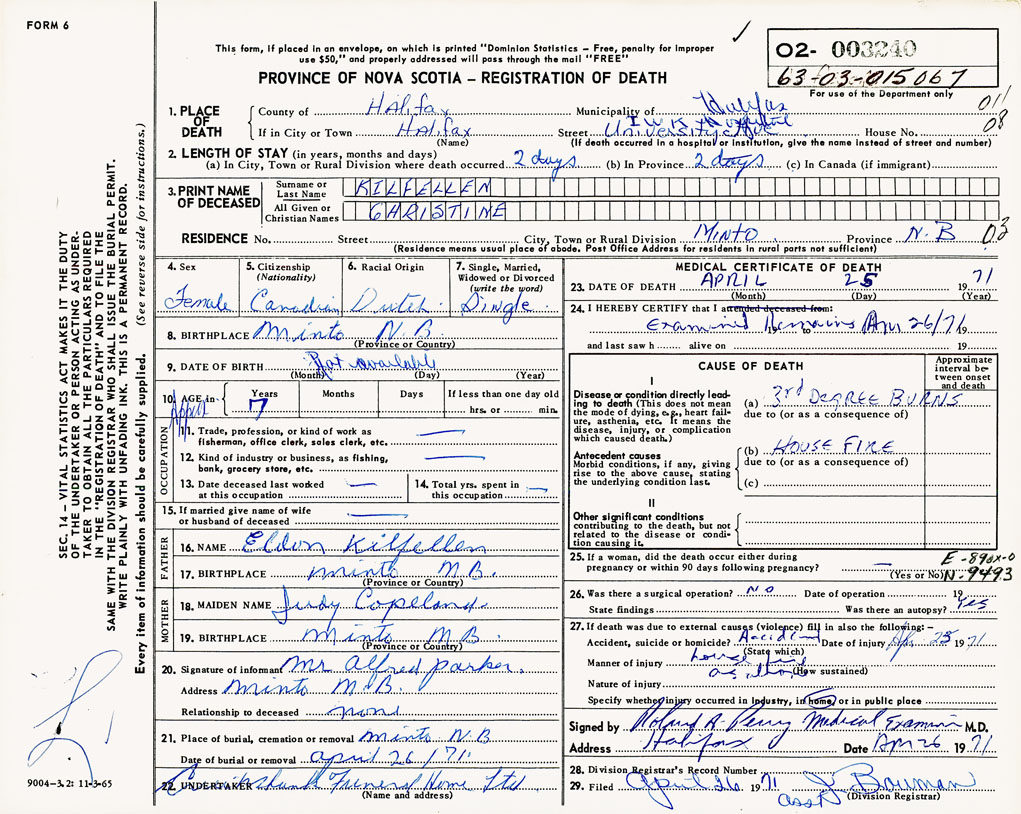 FORM 6
This form, if placed in an envelope, on which is printed "Dominion Statistics – Free, penalty for improper
use $50," and properly addressed will pass through the mail "FREE"
PROVINCE OF NOVA SCOTIA – REGISTRATION OF DEATH
02- 003240
63-03-015067
For use of the Department only
011
08
SEC. 14 – VITAL STATISTICS ACT MAKES IT THE DUTY
OF THE UNDERTAKER OR PERSON ACTING AS UNDER-
TAKER TO OBTAIN ALL THE PARTICULARS REQUIRED
IN THE "REGISTRATION OF DEATH" AND TO FILE THE
SAME WITH THE DIVISION REGISTRAR WHO SHALL ISSUE THE BURIAL PERMIT.
WRITE PLAINLY WITH UNFADING INK. THIS IS A PERMANENT RECORD.
Every item of information should be carefully supplied. (See reverse side for instructions.)
1. PLACE OF DEATH
County of Halifax Municipality of Halifax
I W K Hospital
If in City or Town Halifax Street University Ave House No.
(Name) (If death occurred in a hospital or institution, give the name instead of street and number)
2. LENGTH OF STAY (in years, months and days)
(a) In City, Town or Rural Division where death occurred 2 days (b) In Province 2 days (c) In Canada (if immigrant)
3. PRINT NAME OF DECEASED
Surname or Last Name KILFELLEN
All Given or Christian Names CHRISTINE
RESIDENCE No. Street City, Town or Rural Division Minto Province N.B 03
(Residence means usual place of abode. Post Office Address for residents in rural parts not sufficient)
4. Sex Female
5. Citizenship (Nationality) Canadian
6. Racial Origin Dutch
7. Single, Married, Widowed or Divorced (write the word) Single
8. BIRTHPLACE Minto N.B
(Province or Country)
9. DATE OF BIRTH Not available
(Month) (Day) (Year)
10. AGE in Years Months Days If less than one day old
7 hrs. or min.
OCCUPATION
11. Trade, profession, or kind of work as
fisherman, office clerk, sales clerk, etc. —
12. Kind of industry or business, as fishing,
bank, grocery store, etc. —
13. Date deceased last worked
at this occupation —
14. Total yrs. spent in
this occupation —
15. If married give name of wife
or husband of deceased —
FATHER
16. NAME Eldon Kilfellen
17. BIRTHPLACE Minto N.B.
(Province or Country)
MOTHER
18. MAIDEN NAME Judy Copeland
19. BIRTHPLACE Minto N.B.
(Province or Country)
20. Signature of informant Mr Alfred Parker.
Address Minto N.B.
Relationship to deceased none
21. Place of burial, cremation or removal Minto N.B
Date of burial or removal April 26/71.
22. UNDERTAKER Funeral Home Ltd
(Name and address)
9004-3.2: 11-3-65
MEDICAL CERTIFICATE OF DEATH
23. DATE OF DEATH APRIL 25 1971
(Month) (Day) (Year)
24. I HEREBY CERTIFY that I attended deceased from:
Examined Remains Apr 26/71 19
and last saw h alive on 19
CAUSE OF DEATH
Approximate interval between onset and death
I
Disease or condition directly lead-
ing to death (This does not mean
the mode of dying, e.g., heart fail-
ure, asthenia, etc. It means the
disease, injury, or complication
which caused death.)
(a) 3rd DEGREE BURNS
due to (or as a consequence of)
Antecedent causes
Morbid conditions, if any, giving
rise to the above cause, stating
the underlying condition last.
(b) HOUSE FIRE
due to (or as a consequence of)
(c)
II
Other significant conditions
contributing to the death, but not
related to the disease or condi-
tion causing it.
25. If a woman, did the death occur either during
pregnancy or within 90 days following pregnancy? —
(Yes or No)
E-890X-0
N-9493
26. Was there a surgical operation? NO Date of operation 19
State findings Was there an autopsy? Yes
27. If death was due to external causes (violence) fill in also the following:–
Accident, suicide or homicide? Accident Date of injury Apr 25 1971
(State which)
Manner of injury house fire
(How sustained)
Nature of injury
Specify whether injury occurred in industry, in home, or in public place
Signed by Roland A. Perry Medical Examiner M.D.
Address Halifax Date Apr 26 1971
28. Division Registrar's Record Number
29. Filed April 26 1971 J Bowman
asst (Division Registrar)